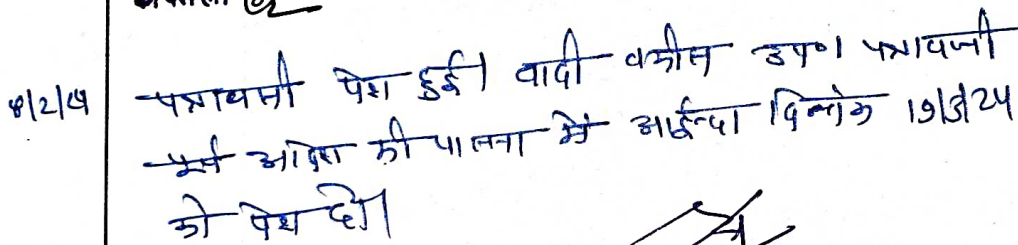 8/2/24 पत्रावली पेश हुई। वादी वकील उप०। पत्रावली
पूर्व आदेश की पालना में आईन्दा दिनांक 19/3/24
को पेश हो।